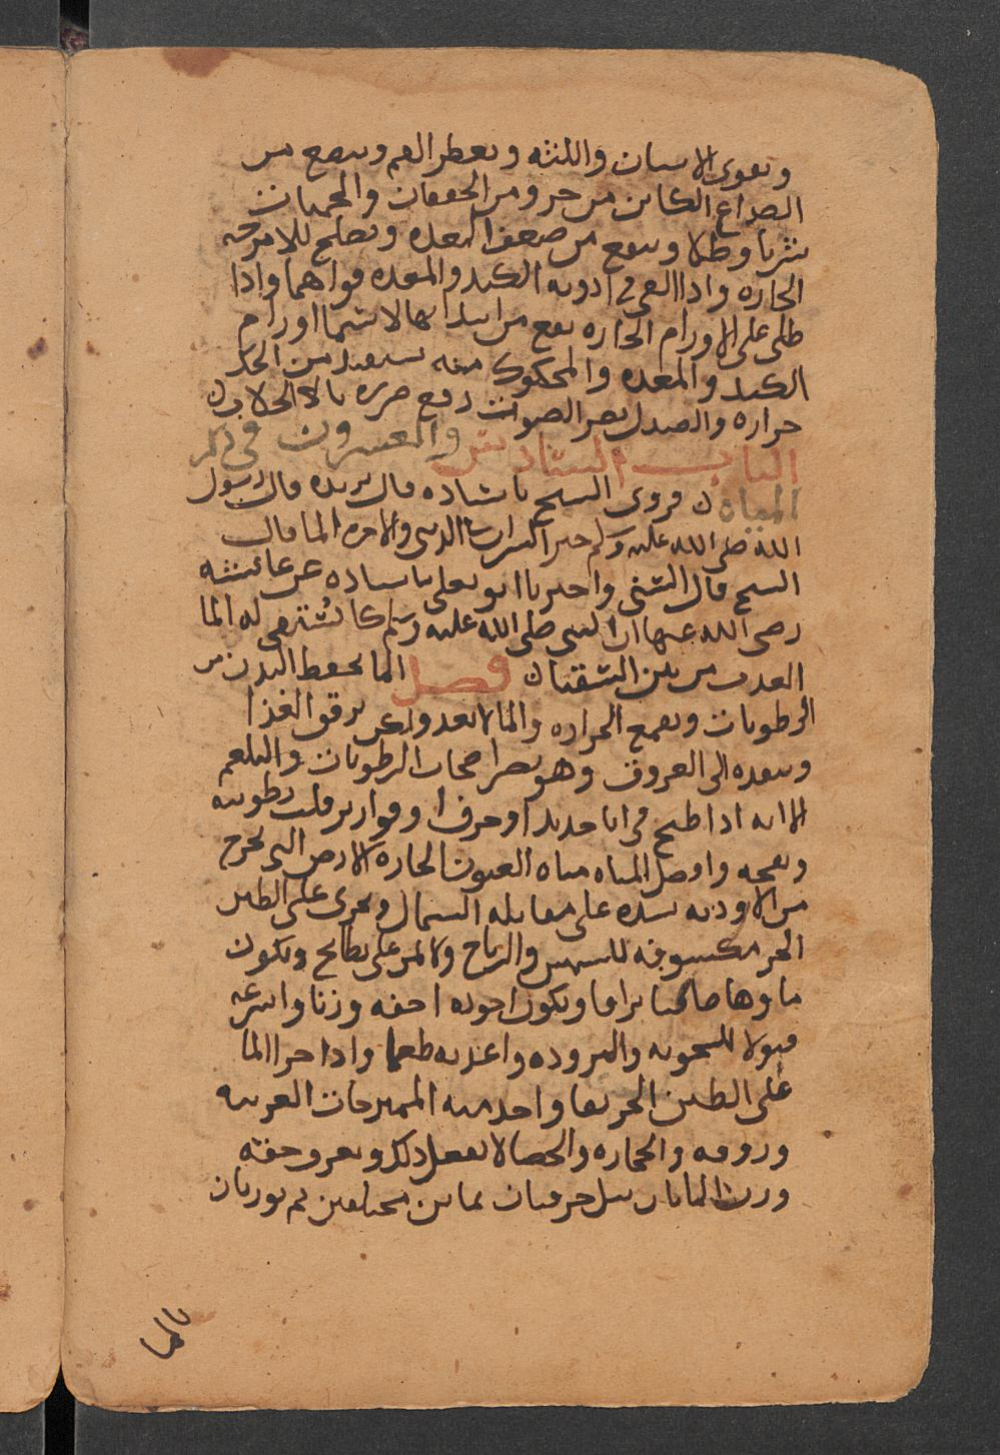 ويقوى الاسنان واللثه ويعطر الفم وينفع من
الصداع الكاين من حر ومن الخفقان والحميات
شربا وطلا وينفع من ضعف المعده ويصلح للامزجه
الحاره واذا القى فى ادويه الكبد والمعده قواهما واذا
طلى على الاورام الحاره نفع من ابتدايها لا سيما اورام
الكبد والمعده والمحكوك منه يستفيد من الحك
حراره والصندل يضر الصوت دفع ضرره بالا الجلاب
الباب السادس والعشرون فى ذكر
المياه فروى الشيخ باسناده قال بريده قال رسول
الله صلى الله عليه وسلم خير الشراب فى الدنيا والاخره الما قال
الشيخ قال السنى واخبرنا ابو يعلى باسناده عن عائشه
رضى الله عنها ان النبى صلى الله عليه وسلم كان يستقى له الما
العذب من بين السقيا فصل الما يحفظ البدن من
الرطوبات ويقمع الحراره والما لا يغذو ولكن يرقق الغذا
وينفده الى العروق وهو يضر اصحاب الرطوبات والبلغم
الا انه اذا طبخ فى انا حديد او خزف او قوارير قلت رطوبته
ونفخه وافضل المياه مياه العيون الحاره الارض التى تخرج
من الاوديه على مقابله الشمال وتجرى على الطين
الحر مكشوفه للشمس والرياح ولا تمر على بطايح ويكون
ماوها صافيا براقا ويكون اجوده اخفه وزنا واسرعه
قبولا للسخونه والبروده واعذبه طعما واذا جرا الما
على الطين الحر نقا واخذ منه الممتزجات الغريبه
وروقه والحجاره والحصا لا يفعل ذلك ويعرف خفته
وزن الما بان يبل خرقتان بماين مختلفين ثم يوزنان
بالما